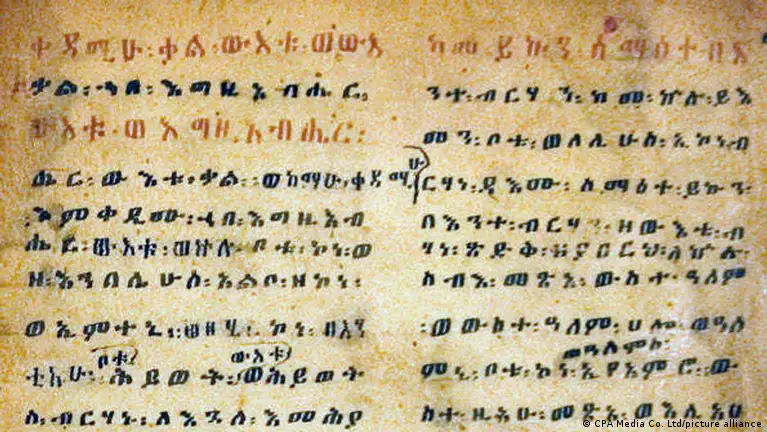 ቀዳሚሁ፡ቃል፡ውእቱ፡ወውእ
ቱ፡ቃል፡ኀበ፡እግዚአብሔር፡
ውእቱ፡ወእግዚአብሔር፡
ሔር፡ውእቱ፡ቃል፡ወከማሁ፡ቀዳሚሁ
እምቀዲሙ፡ኀበ፡እግዚአብ
ሔር፡ውእቱ፡ወኵሉ፡ቦቱ፡ኮነ፡ወ
ዘ፡እንበሌሁሰ፡አልቦ፡ዘኮነ፡
ወኢምንተኒ፡ወዘሂ፡ኮነ፡በእን
ቦቱ ውእቱ
ቲአሁ፡ሕይወት፡ወሕይወት
ሰ፡ብርሃኑ፡ለእጓለ፡እመሕያ
ከመ፡ይኩን፡ሰማዕተ፡በእ
ንተ፡ብርሃን፡ከመ፡ኵሉ፡ይእ
መን፡ቦቱ፡ወለሊሁሰ፡ኢኮነ፡ብ
ርሃነ፡ዳእሙ፡ሰማዕተ፡ይኩን፡
በእንተ፡ብርሃን፡ዘውእቱ፡ብ
ሃነ፡ጽድቅ፡ዘያበርህ፡ለኵሉ፡
ሰብእ፡መጽአ፡ውስተ፡ዓለም
፡ወውስተ፡ዓለም፡ሀሎ፡ወዓለ
ምኒ፡ቦቱ፡ኮነ፡ኢያእምሮ፡ው
ስተ፡ዚአሁ፡መጽአ፡ወእሊአሁ
© CPA Media Co. Ltd/picture alliance